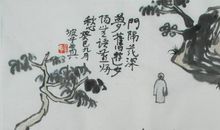 門隔花深
夢舊遊夕
陽無語燕歸
愁 癸巳九月